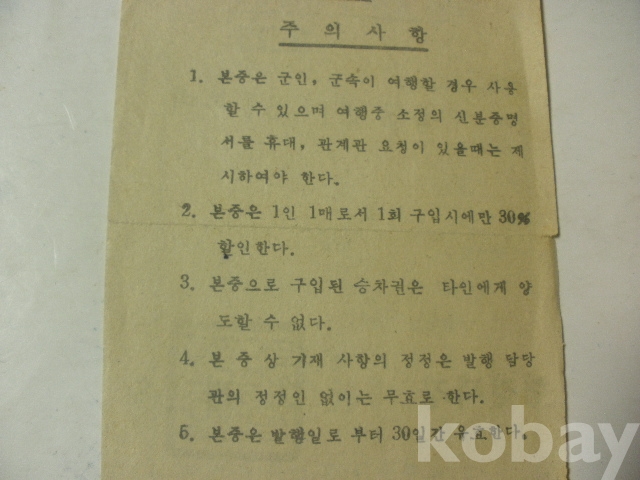 주의사항
1. 본증은 군인, 군속이 여행할 경우 사용
할 수 있으며 여행중 소정의 신분증명
서를 휴대, 관계관 요청이 있을때는 제
시하여야 한다.
2. 본증은 1인 1매로서 1회 구입시에만 30%
할인한다.
3. 본증으로 구입된 승차권은 타인에게 양
도할 수 없다.
4. 본 증 상 기재 사항의 정정은 발행 담당
관의 정정인 없이는 무효로 한다.
5. 본증은 발행일로 부터 30일간 유효한다.
kobay